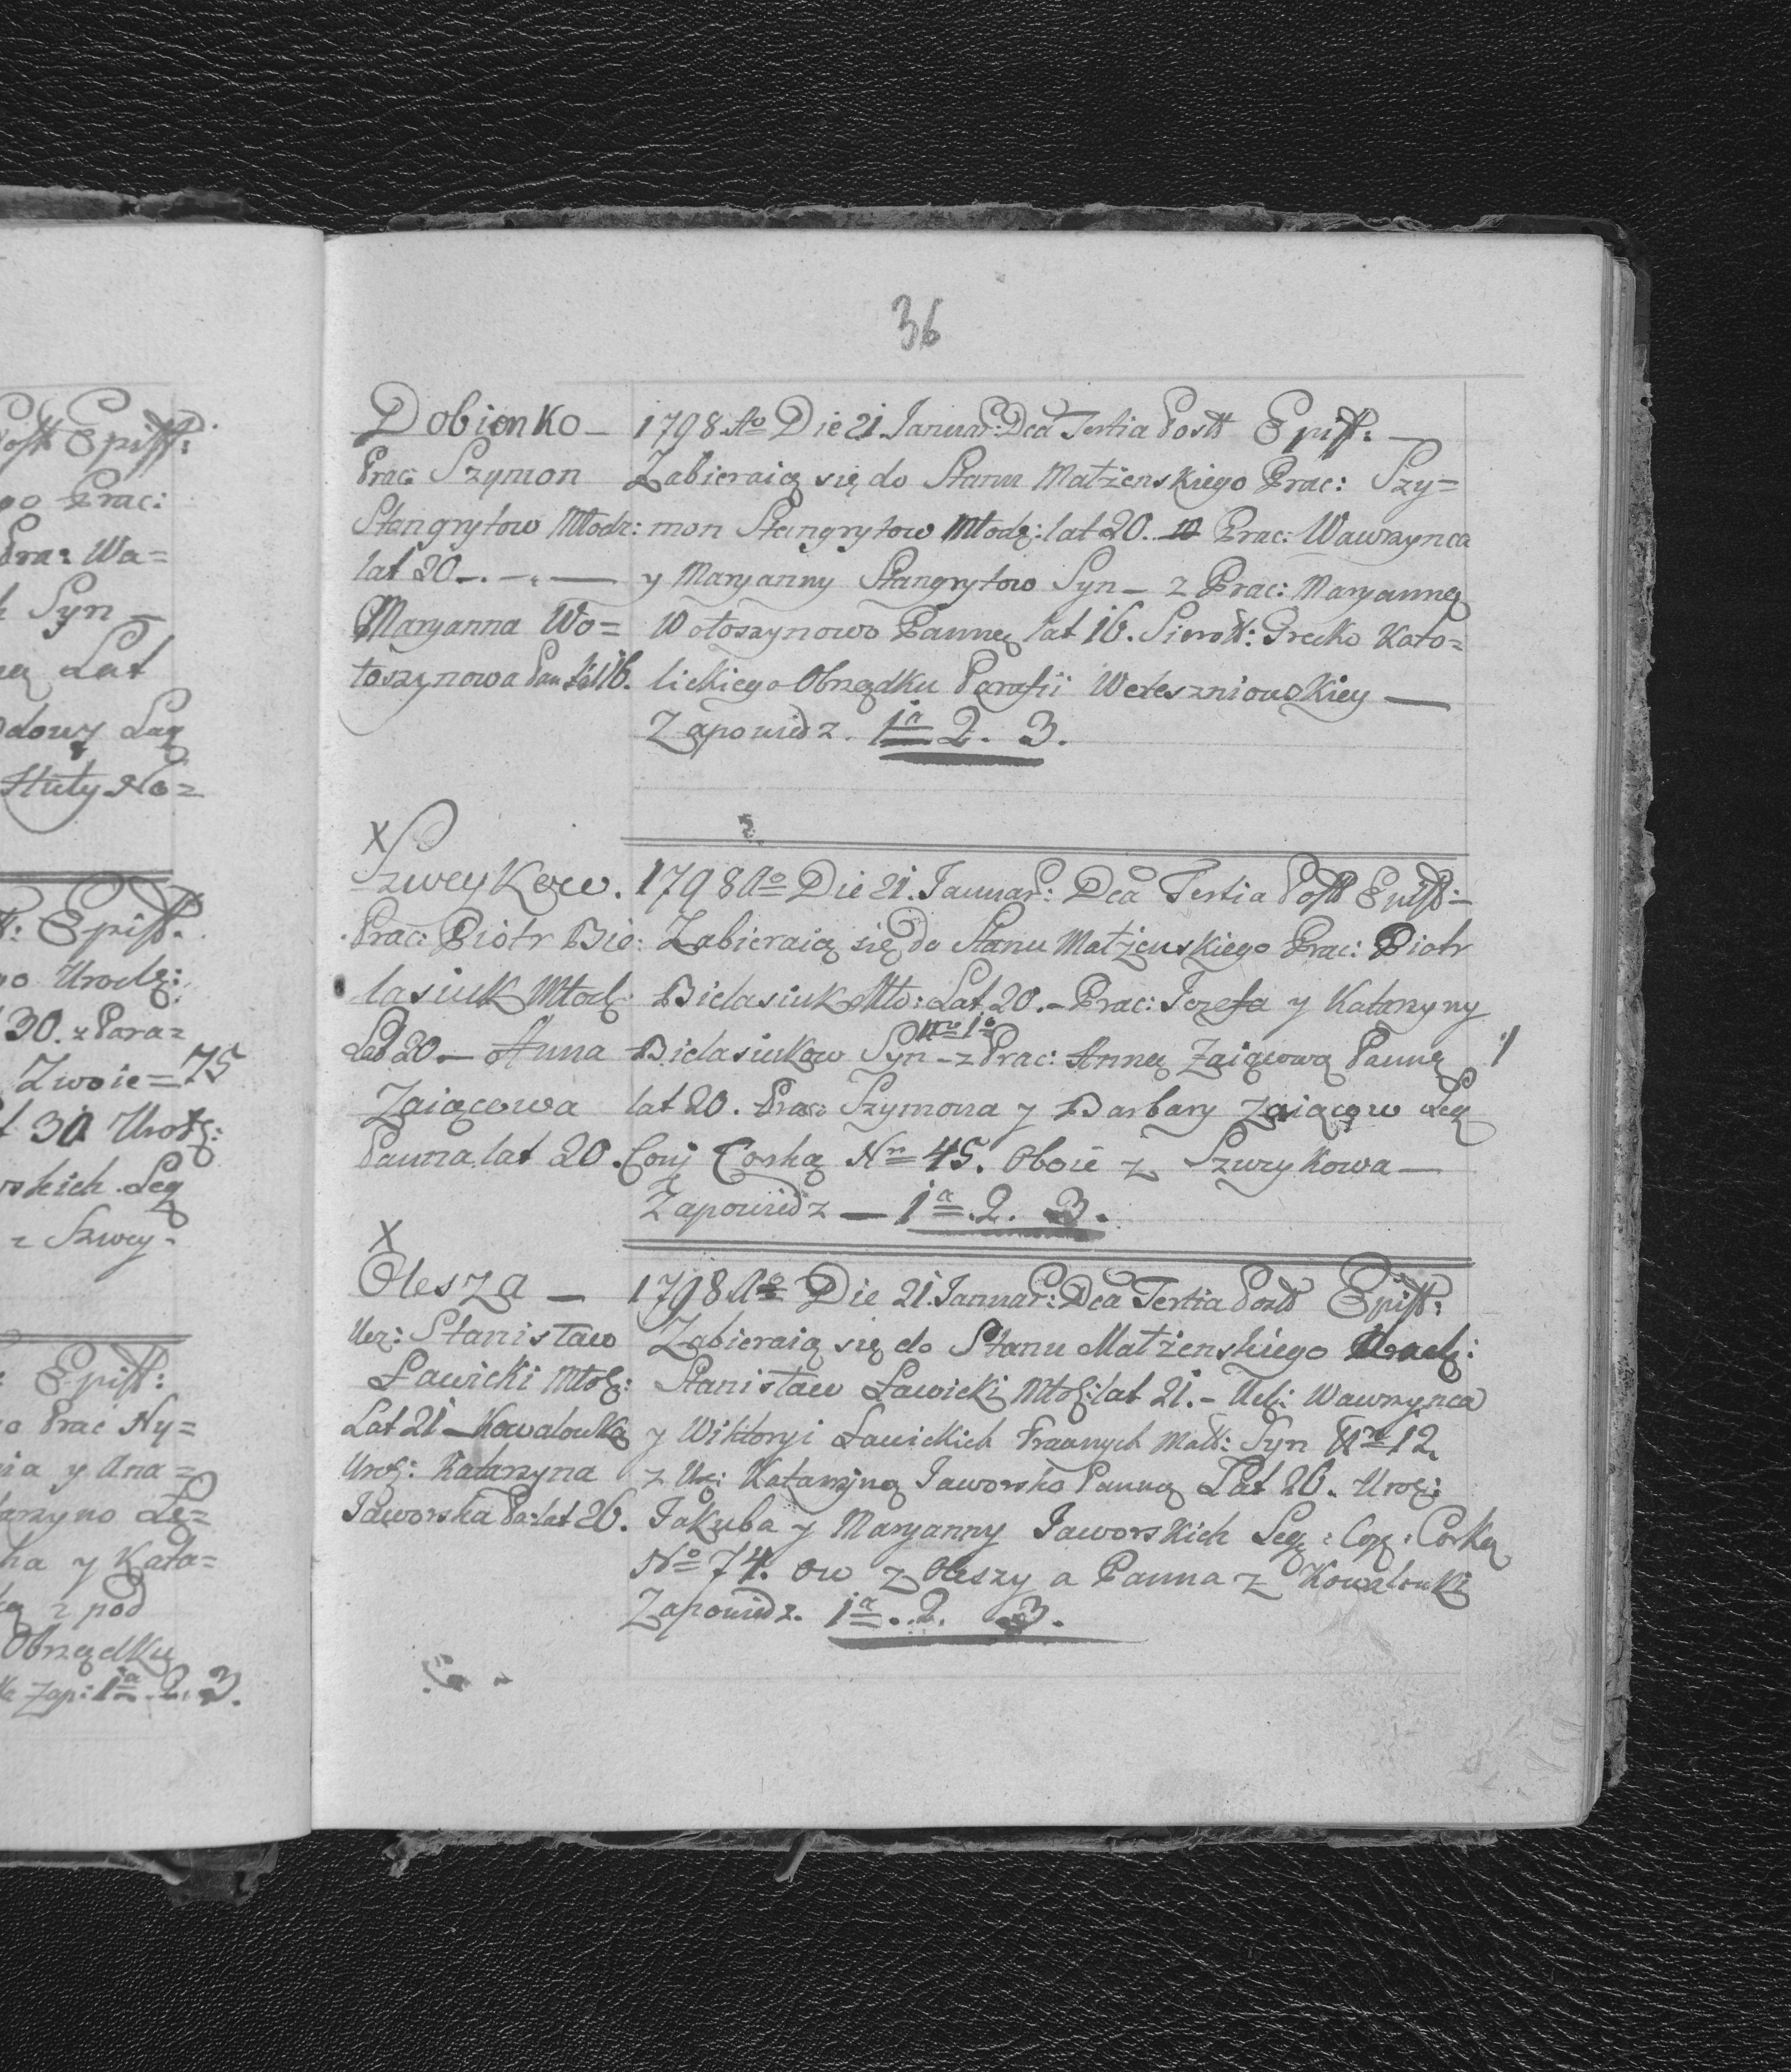 36
Dobionko —
Prac: Szymon
Stangrytow Młodz:
lat 20 —. —. —
Maryanna Wo=
łoszynowa Pan lat 16.
1798 Ao Die 21 Januar: Dca Tertia Post Epiff: —
Zabieraią się do Stanu Małżenskiego Prac: Szy=
mon Stangrytow Młodz: lat 20. Prac: Wawrzynca
y Maryanny Stangrytow Syn — z Prac: Maryanną
Wołoszynowo Panną lat 16. Sierott: Grecko Kato=
lickiego Obrządku Parafii Wereszniowskiey —
Zapowiedz. 1a 2. 3.
X
Szweykow.
Prac: Piotr Bie:
lasiuk Młod:
Lat 20 — Anna
Zaiącowa
Panna lat 20.
2.
1798 Ao Die 21. Januar: Dca Tertia Post Epiff: —
Zabieraią się do Stanu Małżenskiego Prac: Piotr
Bielasiuk Mło: Lat 20. — Prac: Jozefa y Katarzyny
Nro 1o
Bielasiukow Syn — z Prac: Anną Zaiącową Panną
lat 20. Prac: Szymona y Barbary Zaiącow Leg
Conj Corką Nro 45. Oboie z Szweykowa —
Zapowiedz — 1a. 2. 3.
X
Olesza —
Urz: Stanisław
Ławicki Młodz:
Lat 21 — Kowalowka
Urodz: Katarzyna
Jaworska Pa: lat 26.
1798 Ao Die 21. Januar: Dca Tertia Post Epiff:
Zabieraią się do Stanu Małżenskiego Urodz:
Stanisław Ławicki Młodz: lat 21. — Wawrzynca
y Wiktoryi Ławickich Prawnych Małż: Syn Nro 12
z Urz: Katarzyną Jaworsko Panną Lat 26. Urodz:
Jakuba y Maryanny Jaworskich Leg: Conj: Corką
No 74. ow z Oleszy a Panna z Kowalowki
Zapowiedz. 1a. 2. 3.
Post Epiff:
go Prac:
Prac: Wa=
Syn —
Lat
Leg
Huty No=
Epiff:
go Urodz:
30. z Para=
Zwoie= 75
30 Urodz:
rskich Leg
z Szwey=
Epiff:
o Prac Hy=
y Ana=
y Kata=
z pod
Obrządku
Zap: 1a. 2. 3.